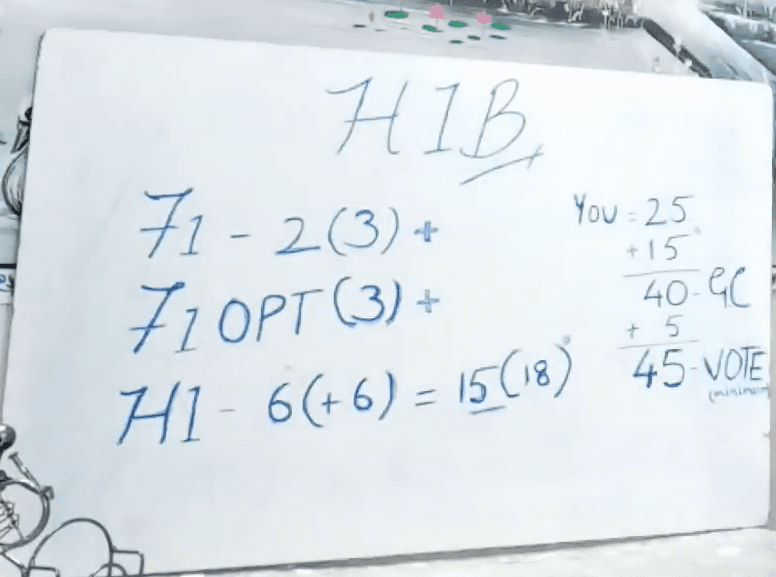 H1B
F1 - 2(3) +
F1 OPT (3) +
H1 - 6(+6) = 15(18)
YOU = 25
+15
40 - GC
+ 5
45 - VOTE
(minimum)